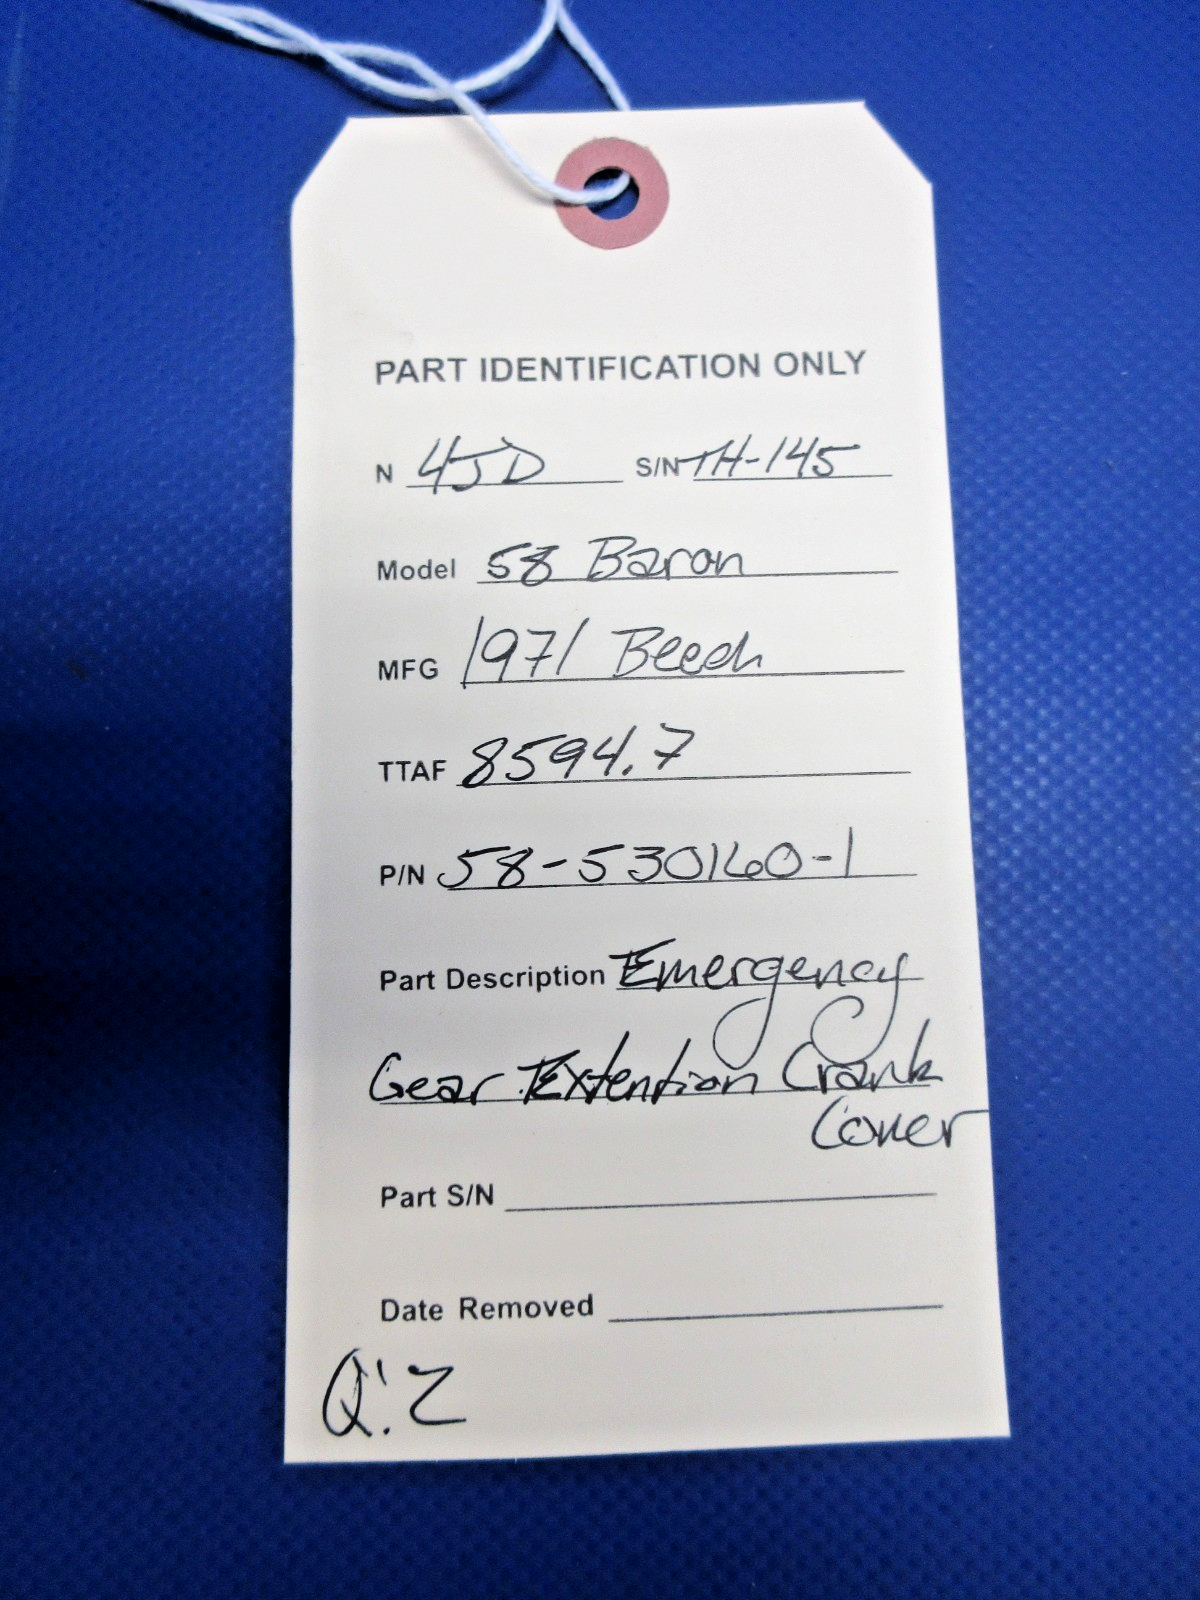 PART IDENTIFICATION ONLY
N 4JD S/N TH-145
Model 58 Baron
MFG 1971 Beech
TTAF 8594.7
P/N 58-530160-1
Part Description Emergency
Gear Extention Crank
Cover
Part S/N
Date Removed
Q:2